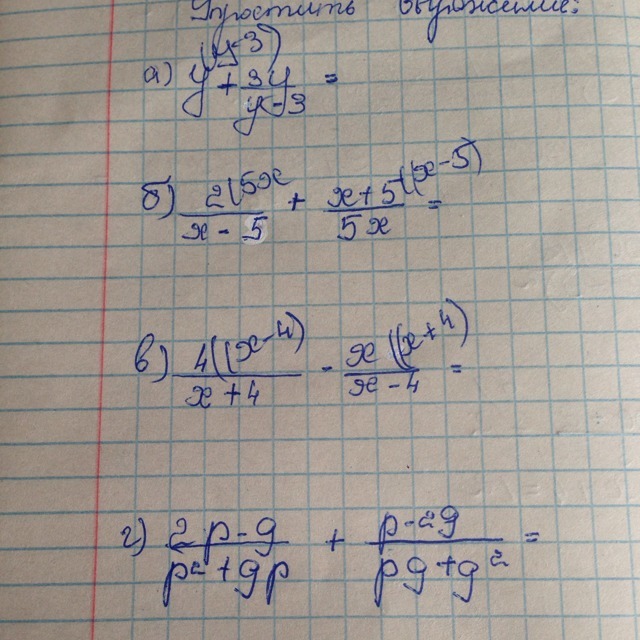 Упростить выражение:
(y-3)
а) y + 3y/y-3 =
б) 2(5x/x-5 + x+5((x-5)/5x =
в) 4((x-4)/x+4 - x((x+4)/x-4 =
г) 2p-g/p²+gp + p-2g/pg+g² =